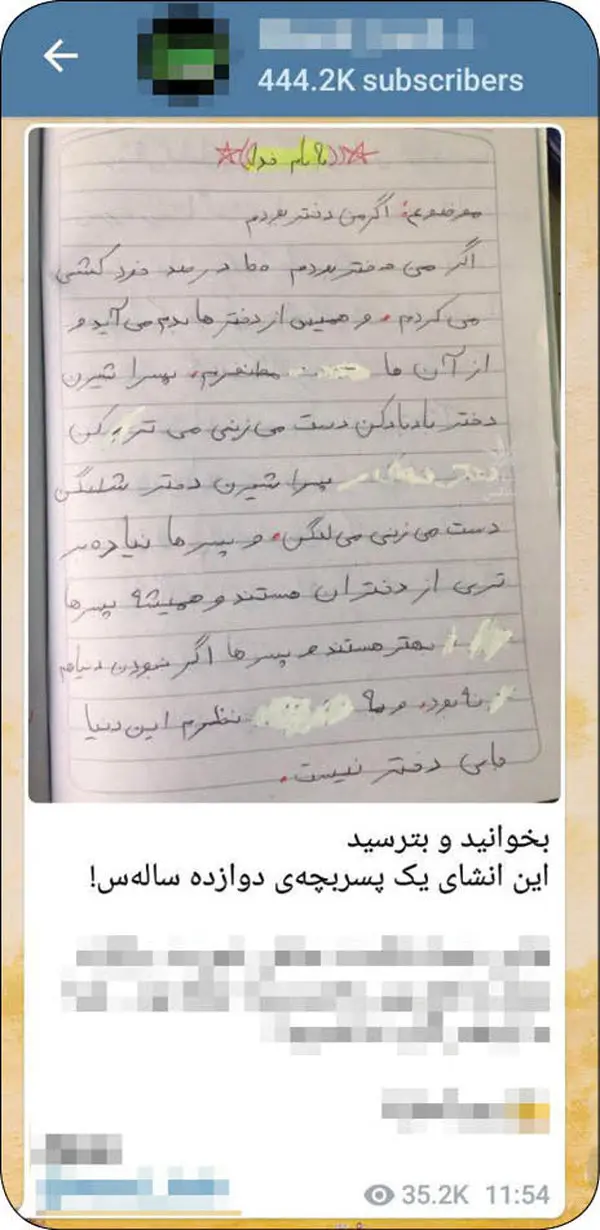 444.2K subscribers
((به نام خدا))
موضوع: اگر من دختر بودم
اگر می دختر بودم ۱۰۰ درصد خودکشی
می کردم. و همیس از دختر ها بدم می آید و
از آن ها متنفرم. پسرا شیرن
دختر بادبادکن دست می زنی می ترکن
پسرا شیرن دختر شلنگن
دست می زنی می لنگن. و پسر ها
تری از دختران هستند و همیشه پسرها
بهتر هستند و پسر ها اگر نبودن دنیا هم
نه بود. و به نظرم این دنیا
جای دختر نیست.
بخوانید و بترسید
این انشای یک پسربچه‌ی دوازده ساله‌س!
35.2K 11:54